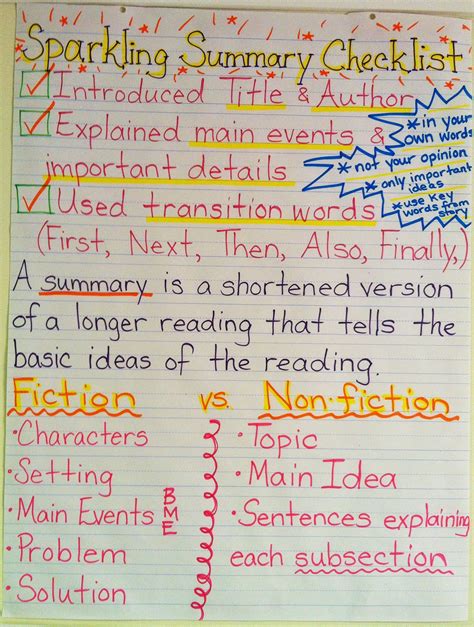 Sparkling Summary Checklist
Introduced Title & Author
Explained main events &
important details
* in your
own words
* not your opinion
* only important
ideas
* use key
words from
story
Used transition words
(First, Next, Then, Also, Finally,)
A summary is a shortened version
of a longer reading that tells the
basic ideas of the reading.
Fiction vs. Non-fiction
• Characters
• Setting
• Main Events
• Problem
• Solution
B
M
E
• Topic
• Main Idea
• Sentences explaining
each subsection